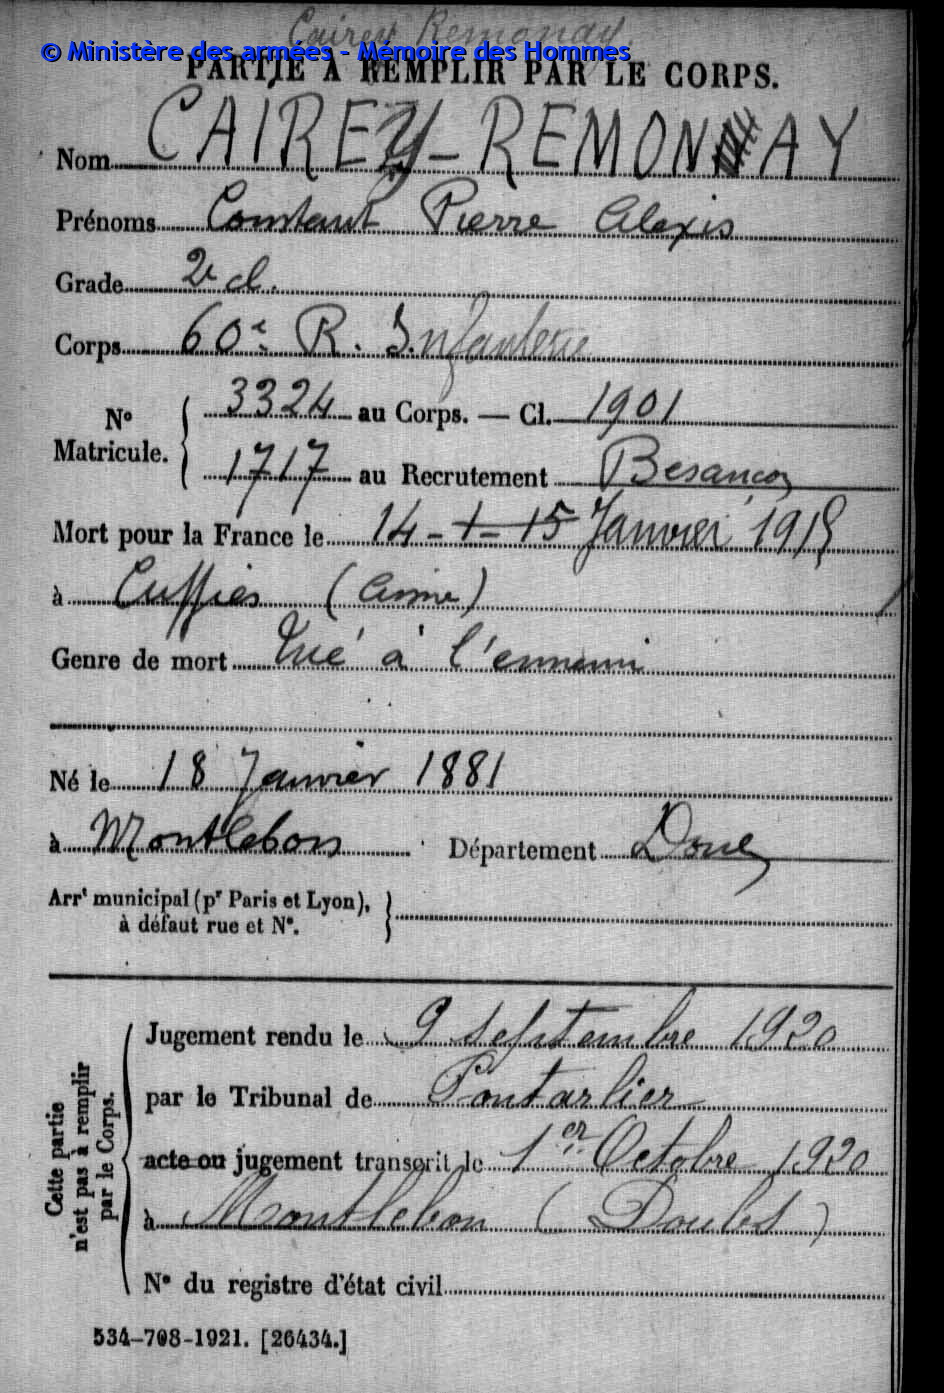 Cairey Remonay.
© Ministère des armées - Mémoire des Hommes
PARTIE À REMPLIR PAR LE CORPS.
Nom CAIREY-REMONNAY
Prénoms Constant Pierre Alexis
Grade 2e cl.
Corps 60e R. Infanterie
N° Matricule. { 3324 au Corps. — Cl. 1901
1717 au Recrutement Besançon
Mort pour la France le 14 - 1 - 15 Janvier 1915
à Cuffies (Aisne)
Genre de mort Tué à l'ennemi
Né le 18 Janvier 1881
à Montlebon Département Doubs
Arrt municipal (pr Paris et Lyon), }
à défaut rue et N°.
Cette partie n'est pas à remplir par le Corps.
Jugement rendu le 9 septembre 1920
par le Tribunal de Pontarlier
acte ou jugement transcrit le 1er Octobre 1920
à Montlebon (Doubs)
N° du registre d'état civil
534-708-1921. [26434.]